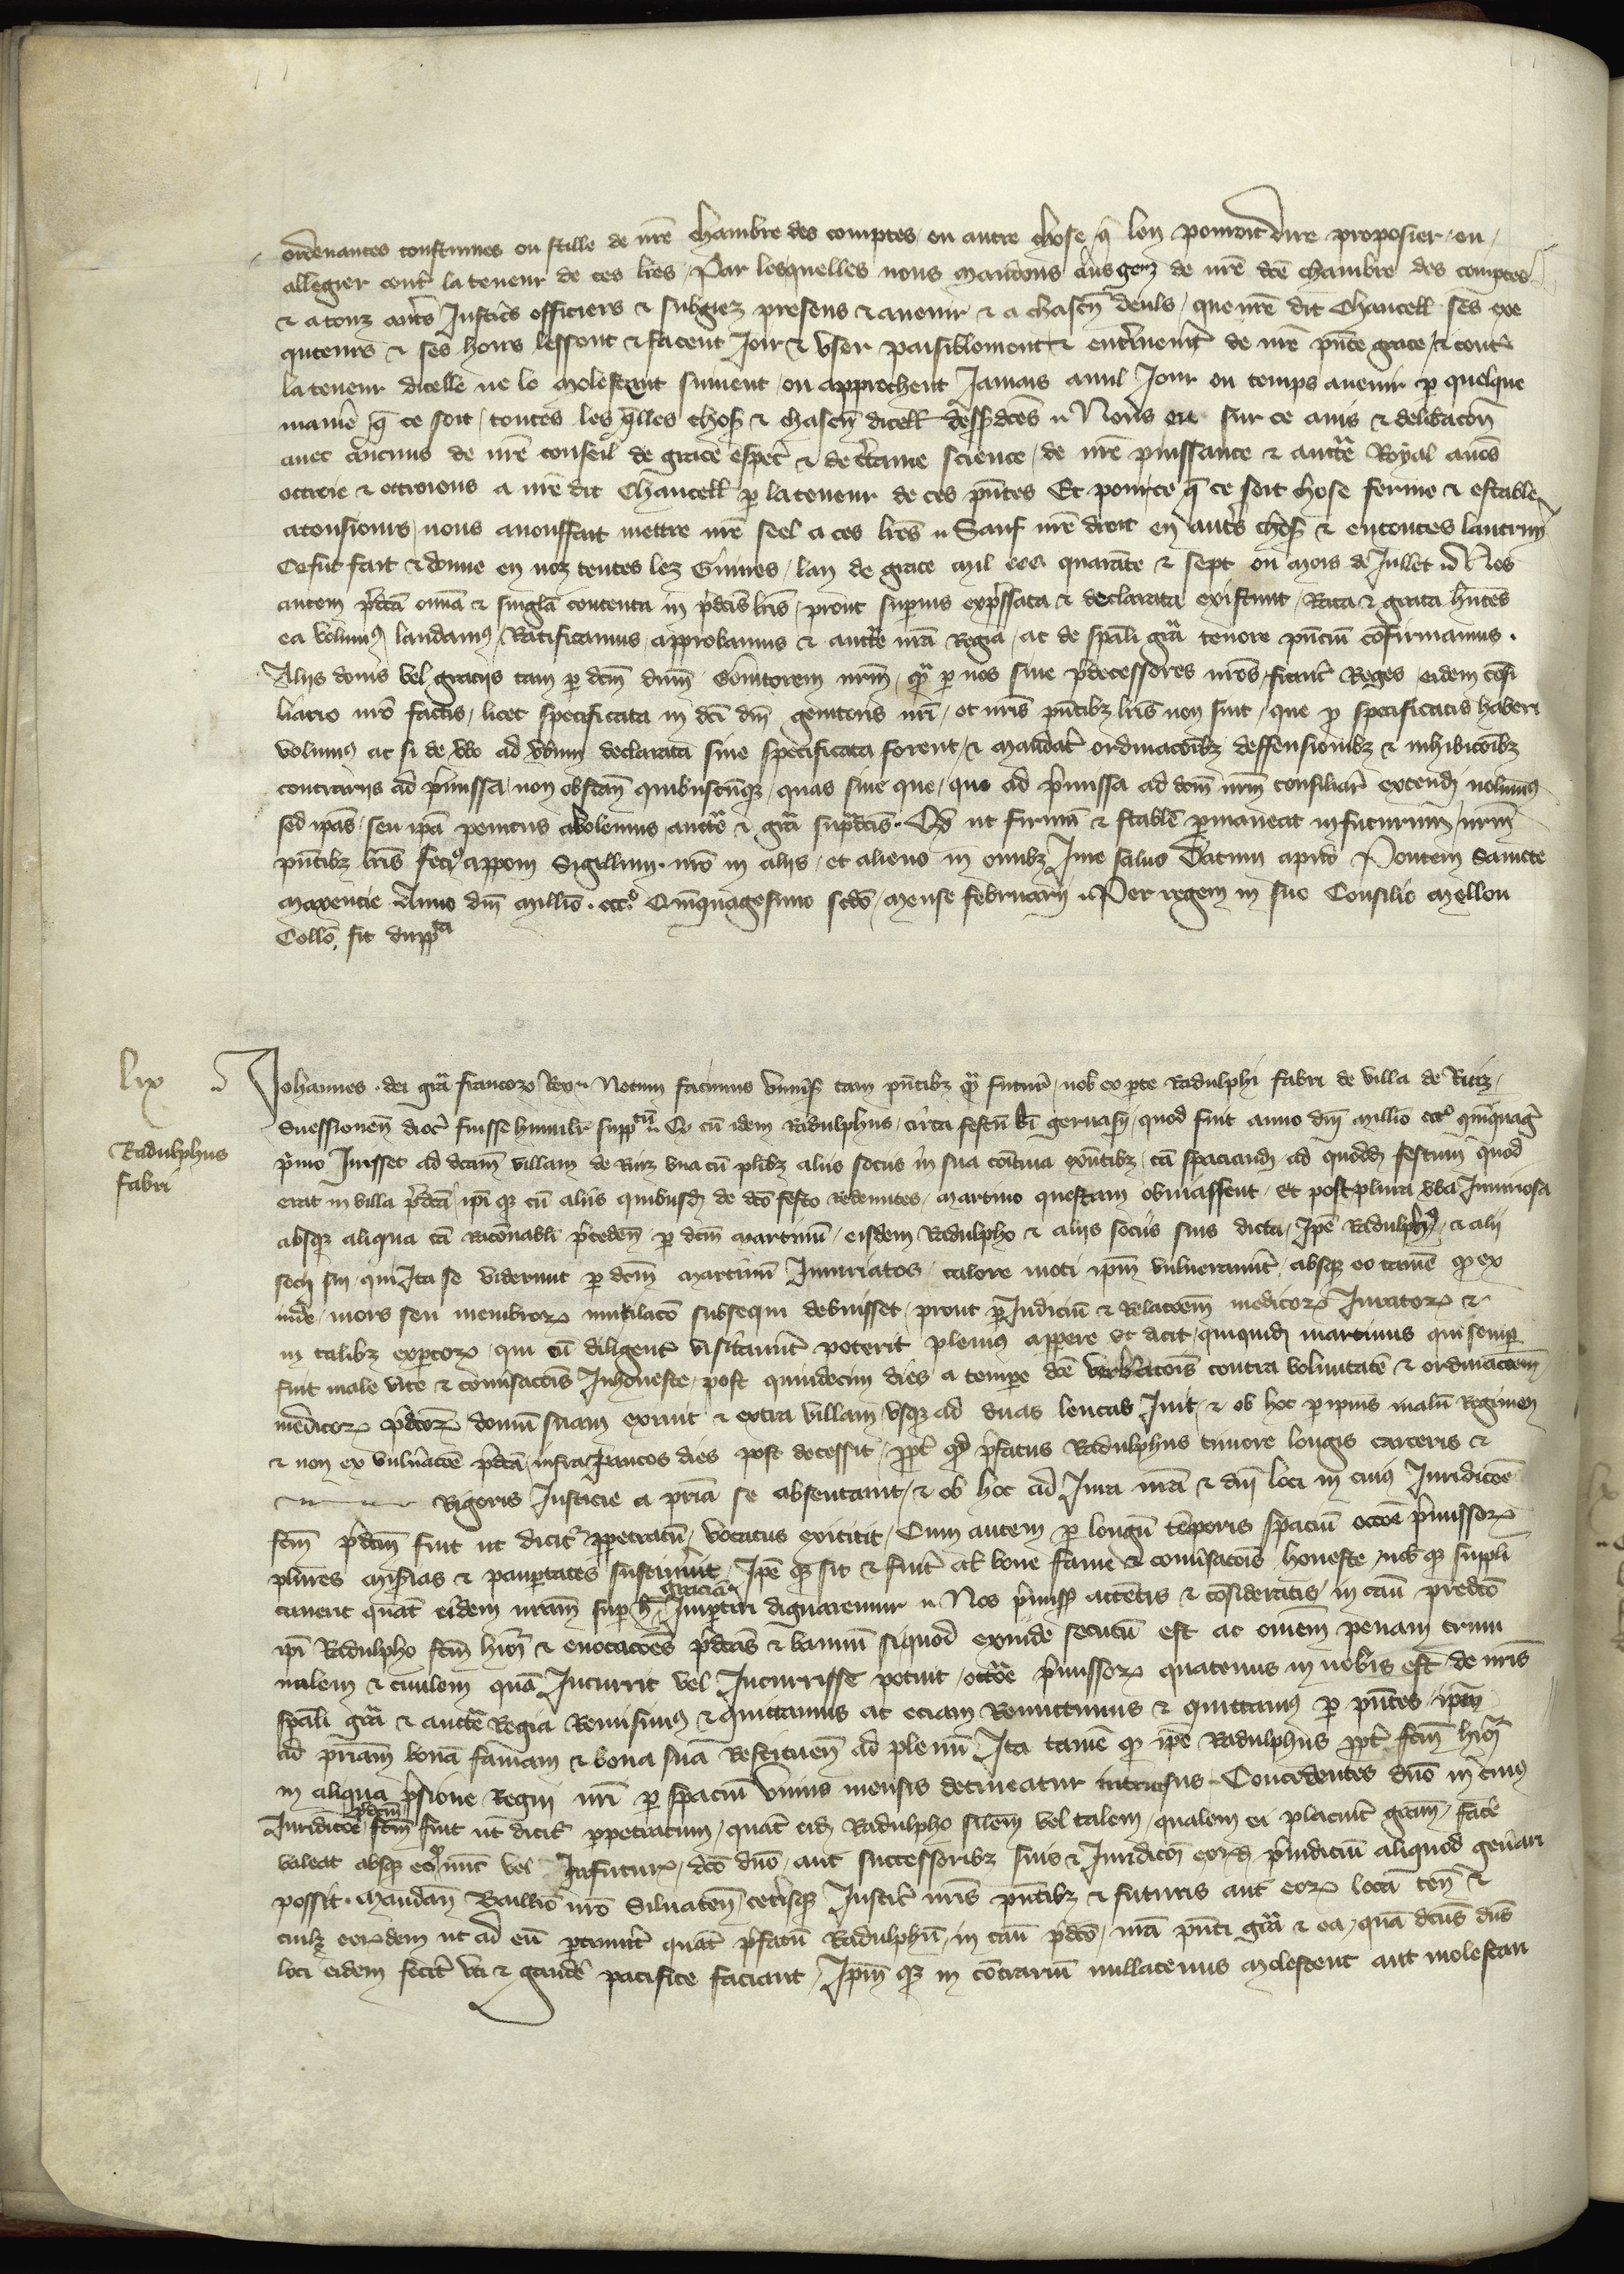 ordenances constumes ou stille de nr̄e chambre des comptes, ou autre chose q̄ lon pourroit dire proposer, ou
allegier cont̄ la teneur de ces lr̄es, Par lesquelles nous mandons a nos genz de nr̄e dc̄e chambre des comptes
& a touz autr̄s Justic̄s officiers & subgiez presens & auenir & a chascūn deuls, que nr̄e dit Chancell ses exe
quteurs & ses hoirs lessent & facent Joir & vser paisiblement & entr̄inem̄t de nr̄e pn̄te grace, & cont̄
la teneur dicelle ne le molestent suiuent, ou approchent Jamais aucul Jour ou temps auenir p quelque
manie q̄ ce soit, toutes les q̄lles chos̄ & chascūn dicell dess̄ dc̄es Nous eu sur ce auis & delibacōn
auec aucuns de nr̄e conseil de grace espec̄ & de c̄taine science, de nr̄e puissance & auct̄e Royal auōs
ottroie & ottroions a nr̄e dit Chancell p la teneur de ces pn̄tes Et pour ce q̄ ce soit chose ferme & estable
a tousiours, nous auons fait mettre nr̄e seel a ces lr̄es Sauf nr̄e droit en autr̄s chos̄ & en toutes lautruȳ
Ce fut fait & donne en noz tentes lez Guines, lan de grace mil ccc quarāte & sept ou mois de Jullet Nos
autem p̄dc̄a om̄ia & singl̄a contenta in p̄dc̄is lr̄is, prout supius exp̄ssata & declarata existunt, Rata & grata hn̄tes
ea volum⁹ laudam⁹, Ratificamus, approbamus & auct̄e nr̄a Regia, ac de spāli grā tenore pn̄ciū cōfirmamus.
Aliis donis vel graciis tam p dc̄m dn̄m Genitorem nr̄m, q̄ p nos siue p̄decessores nr̄os, franc̄ Reges, eidem cōsi
liario nr̄o factis, licet specificata in dc̄i dn̄i genitoris nr̄i, et nr̄is pn̄tibz lr̄is non sint, que p specificatis haberi
volum⁹ ac si de vb̄o ad vb̄um declarata siue specificata forent, & mandat̄ ordinacōibz deffensionibz & inhibicōibz
contrariis ad p̄missa, non obstan̄ quibuscūqz, quas siue que, quo ad p̄missa ad dc̄m nr̄m consiliar̄ extendi nolum⁹
sed ipas, seu ipa penitus abolemus auct̄e & grā sup̄dc̄is. Qd̄ ut firmū & stabile p̄maneat in futurum, nr̄m
pn̄tibz lr̄is fecim⁹ apponi Sigillum. nr̄o in aliis, et alieno in om̄ibz Jure saluo Datum apud Pontem Sancte
maxencie Anno dn̄i millio. ccc.º Quinquagesimo scdo, mense februarii Per regem in suo Consilio Mellou
Collō, fit dupp̄ta

lix
Radulphus
fabri

Johannes. dei grā francorꝝ Rex Notum facimus vniuers̄ tam pn̄tibz q̄ futur̄, nob̄ ex pte Radulphi fabri de villa de Riuz,
Suessionen̄ dioc̄ fuisse humilit̄ supp̄tū Qd̄ cū idem Radulphus, circa festū bī geruasii, quod fuit anno dn̄i millio cccº qīnquaḡ
p̄mo Juisset ad dc̄am villam de Riuz vna cū plibz aliis sociis in sua comitiua exn̄tibz, cā spaciandi ad quoddā festum quod
erat in villa p̄dc̄a, ipi qz cū aliis quibusd̄ de dc̄o festo redeuntes, martino questam obuiassent, Et post plura vb̄a Iniuriosa
absqz aliqua cā racōnabli p̄ceden̄, p dc̄m martinū, eisdem Radulpho & aliis sociis suis dicta, Ipē Radulph⁹, & alii
socii sui, qui Ita se viderunt p dc̄m martinū Iniuriatos, calore moti ipm̄ vulnerauert̄ absqz eo tamē qd̄ ex
inde, mors seu membrorꝝ mutilacō subsequi debuisset, prout p Iudiciū & relacōem medicorꝝ Juratorꝝ &
in talibz expertorꝝ, qui eū diligent̄ visitauer̄t poterit plenius apparere vt dicit, quiquidē martinus qui semp
fuit male vite & conuersacōis Inhoneste, post quindecim dies a tempore dc̄e verberacōis contra voluntatē & ordinacōem
medicorꝝ p̄dc̄orꝝ domū suam exiuit & extra villam vsqz ad duas leucas Iuit, & ob hoc p ipius malū Regimen
& non ex vulneracōe p̄dc̄a, infra paucos dies post decessit, ppt̄ qd̄ p̄fatus Radulphus timore longi carceris &
Rigoris Justicie a p̄ria se absentauit, & ob hoc ad Iura nr̄a & dn̄i loci in cuius Juridicōe
fc̄m p̄dc̄m fuit ut dicit̄ ppetratū, vocatus extitit, Cum autem p longū tēporis spaciū occōe p̄missorꝝ
plures miserias & paupertates sustinuerit, Ipē qz sit & fuit al̄ bone fame & conuersacōis honeste, nob̄ qz suppli
cauerit quat̄ eidem nr̄am sup h̄ graciā Imptiri dignaremur Nos p̄miss̄ attētis & cōsideratis, in casu predc̄o
ipi Radulpho fc̄m hm̄oi & euocacōes p̄dc̄as & bannū siquod exinde secutū est ac om̄em penam crimi
nalem & ciuilem quā Incurrit vel Incurrisse potuit, occōe p̄missorꝝ quatenus in nobis est de nr̄is
spāli grā & auct̄e Regia Remisim⁹ & quittamus ac eciam Remittimus & quittam⁹ p pn̄tes, ipm̄
ad p̄riam bonā famam & bona sua Restituen̄ ad plenū Ita tamē qd̄ ipē Radulphus ppt̄ fc̄m hm̄oi
in aliqua p̄sione Regni nr̄i p spaciū vnius mensis detineatur intrusus Concedentes dn̄o in cui⁹
Juridicōe p̄dc̄m fc̄m fuit ut dicit̄ ppetratum, quat̄ eid̄ Radulpho silem vel talem, qualem ei placuit̄ grām, face
valeat absqz eo qd̄ nūc vel Infuturꝝ, dc̄o dn̄o, aut successoribz suis & Juridic̄ōi eorūd̄ p̄iudiciū aliquod gen̄ari
possit. Mandan̄ Bailliuo nr̄o Siluaten̄, cet̄isqz Justic̄ nr̄is pn̄tibz & futuris aut eorꝝ loca ten̄ &
cuilz eorūdem ut ad eū ptinuit̄ quat̄ p̄fatū Radulphū, in casu p̄dc̄o, nr̄a pn̄ti grā & ea, quā dc̄us dn̄s
loci eidem fecit̄ vti & gaudē pacifice faciant, Ipm̄ qz in cōtrariū nullatenus molestent aut molestari